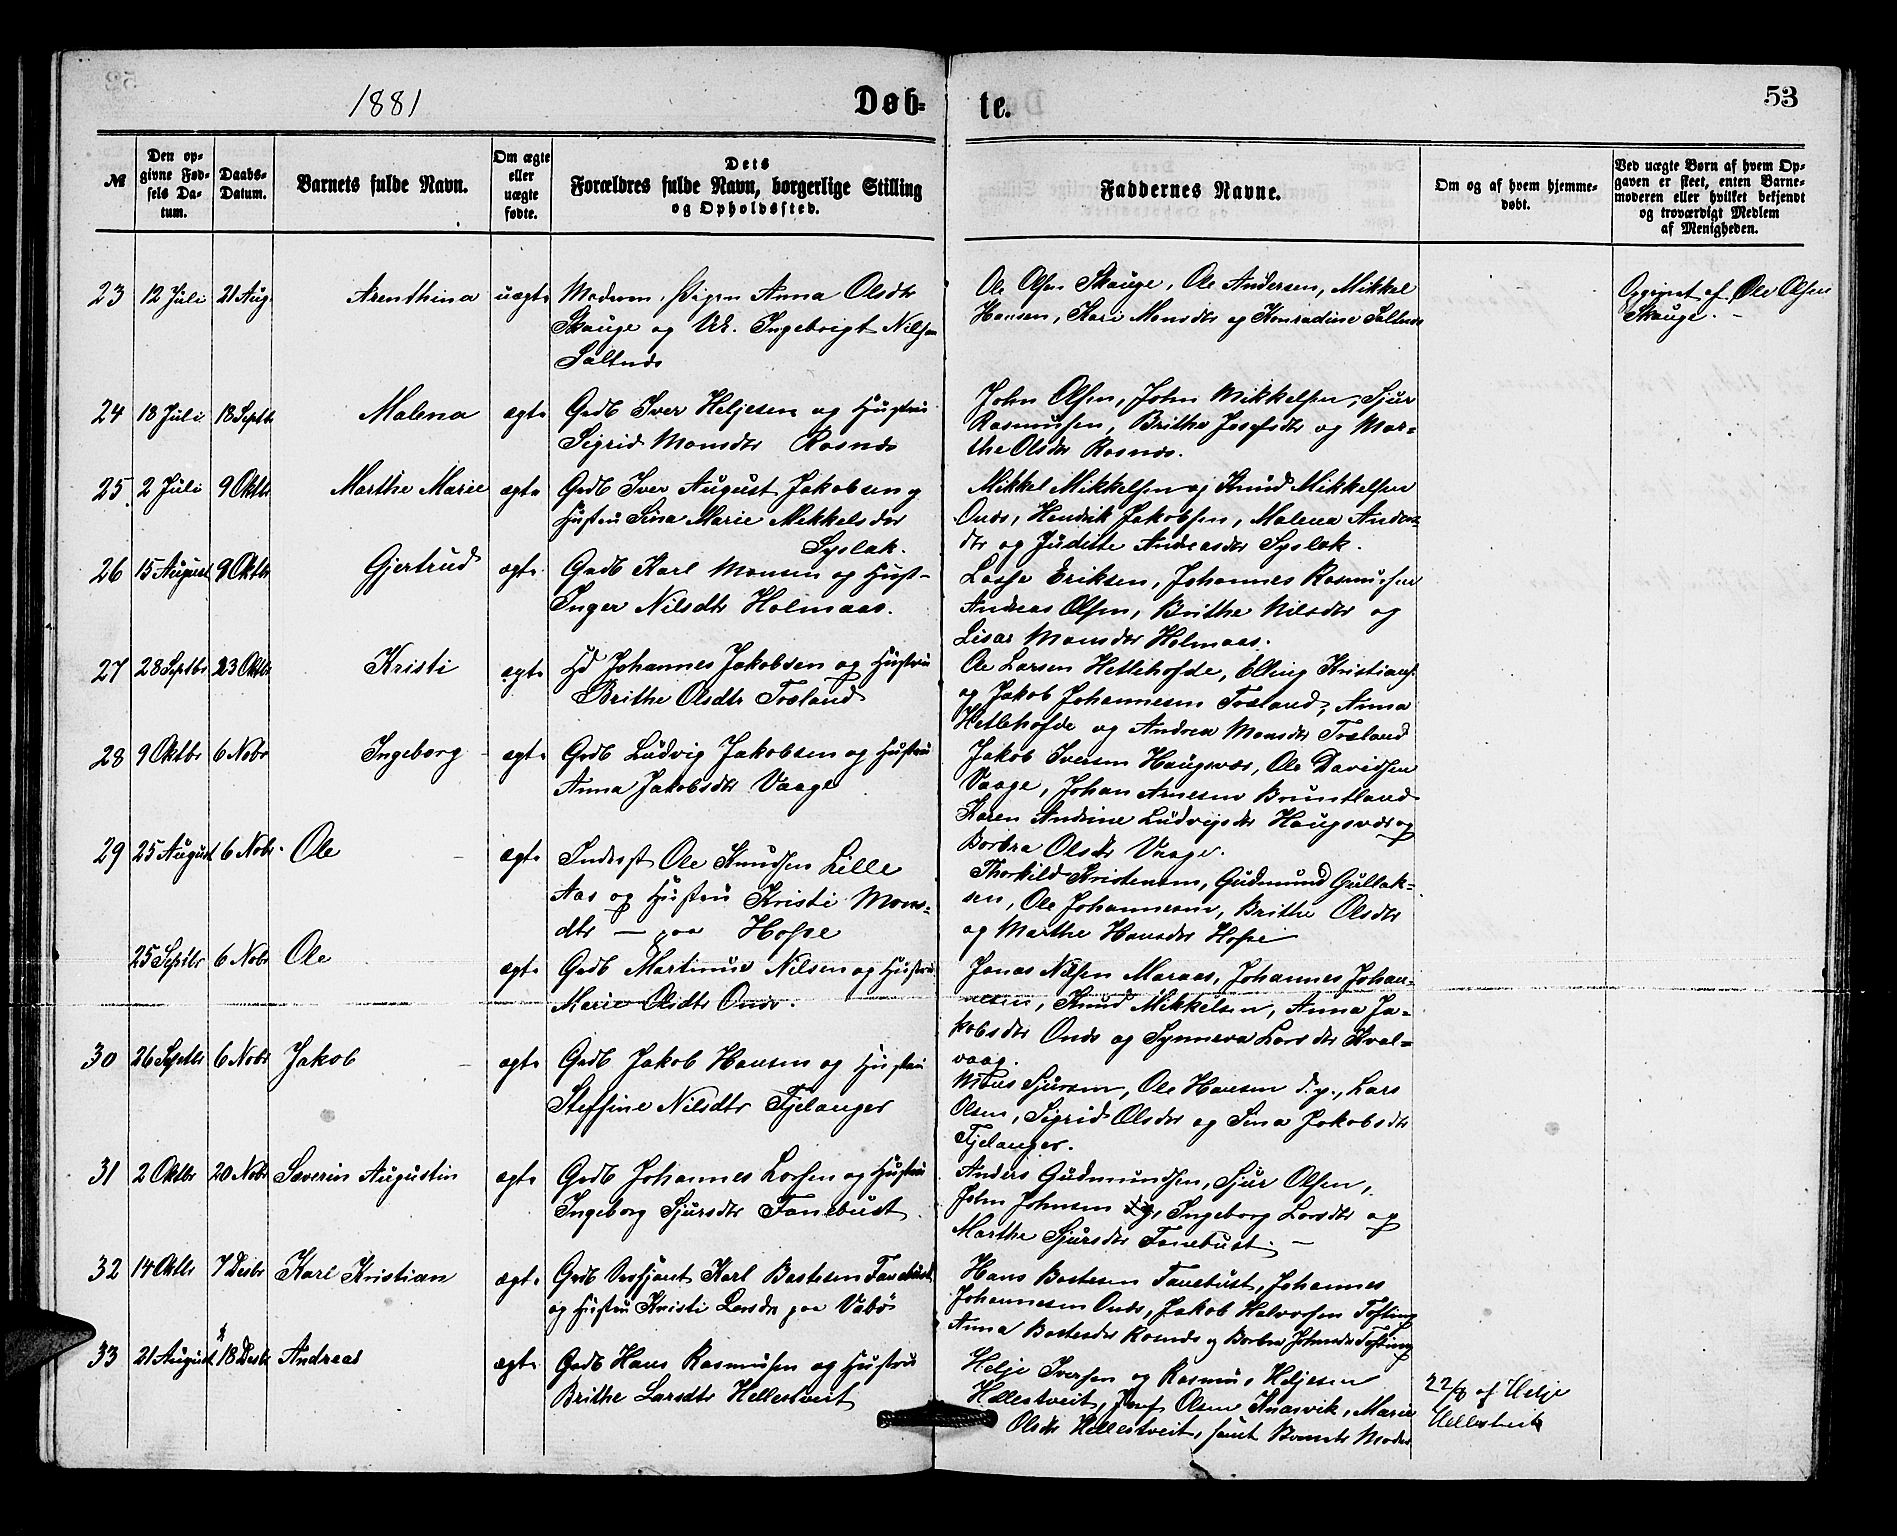 1881
Døb-
te.
53
№
Den op-
givne Fød-
sels Da-
tum.
Daabs-
Datum.
Barnets fulde Navn.
Om ægte
eller
uægte
fødte.
Dets
Forældres fulde Navn, borgerlige Stilling
og Opholdssted.
Faddernes Navne.
Om og af hvem hjemme-
døbt.
Ved uægte Børn af hvem Op-
gaven er skeet, enten Barne-
moderen eller hvilket bekjendt
og troværdigt Medlem
af Menigheden.
23 12 Juli 21 Aug. Arenthina uægte Moderen, Pigen Anna Olsdtr
Skauge og Uk. Ingebrigt Nilsen
Saltnæs
Ole Olsen Skauge, Ole Andersen, Mikkel
Hansen, Kari Monsdtr og Konradine Saltnæs
Opgivet af Ole Olsen
Skauge. -
24 18 Juli 18 Septb Malena ægte Gdb Iver Heljesen og Hustru
Sigrid Monsdtr Rosnæs
John Olsen, John Mikkelsen, Sjur
Rasmussen, Brithe Josefsdtr og Mar-
the Olsdtr Rosnæs.
25. 2 Juli 9 Oktbr Marthe Marie ægte Gdb Iver August Jakobsen og
Hustru Sina Marie Mikkelsdtr
Syslak.
Mikkel Mikkelsen og Knud Mikkelsen
Onæs, Hendrik Jakobsen, Malena Anders-
dtr og Juditte Andreasdtr Syslak.
26 15 August 9 Oktbr Gjertrud ægte Gdb Karl Monsen og Hust-
Inger Nilsdtr Holmaas.
Lasse Eriksen, Johannes Rasmussen
Andreas Olsen, Brithe Nilsdtr og
Lisa Monsdtr Holmaas.
27 28 Septbr 23 Oktbr Kristi ægte Hd Johannes Jakobsen og Hustru
Brithe Olsdtr Tosland
Ole Larsen Hetlehofde, Elling Kristians.
og Jakob Johannesen Tosland, Anna
Hetlehofde og Andrea Monsdtr Tosland
28 9 Oktbr 6 Nobr Ingeborg - ægte Gdb Ludvig Jakobsen og Hustru
Anna Jakobsdtr Vaage
Jakob Iversen Haugsvær, Ole Davidsen
Vaage, Johan Arnesen Bruntland
Karen Andrine Ludvigsdtr Haugsvær og
Borbra Olsdtr Vaage.
29 25 August 6 Nobr. Ole - ægte Inderst Ole Knudsen Lille
Aas og Hustru Kristi Mons-
dtr — paa Hope
Thorkild Kristensen, Gudmund Gullak-
sen, Ole Johannesen, Brithe Olsdtr
og Marthe Hansdtr Hope
25 Septbr 6 Nobr Ole ægte Gdb Martinus Nilsen og Hustru
Marie Olsdtr Onæs.
Jonas Nilsen Maraas, Johannes Johan-
nesen, Knud Mikkelsen, Anna Ja-
kobsdtr Onæs og Synneva Larsdtr Kval-
vaag.
30 26 Septbr 6 Nobr Jakob - ægte Gdb Jakob Hansen og Hustru
Steffine Nilsdtr Fjelanger
Sjursen, Ole Hansen d.y., Lars
Olsen, Sigrid Olsdtr og Sina Jakobsdtr
Fjelanger.
31 2 Oktbr 20 Nobr Severin Augustin ægte Gdb Johannes Larsen og Hustru
Ingeborg Sjursdtr Fanebust
Anders Gudmundsen, Sjur Olsen,
John Johnsen Ingeborg Larsdtr og
Marthe Sjursdtr Fanebust. —
32 14 Oktbr 7 Desbr Karl Kristian ægte Gdb Karl Bastesen Fanebust
og Hustru Kristi Larsdtr paa Vabø
Hans Bastesen Fanebust, Johannes
Johannesen Onæs, Jakob Halvorsen Tofting
Anna Bastesdtr Rosnæs og Borbra Johnsdtr Tofting
33 21 August 18 Desbr Andreas ægte Gdb Hans Rasmussen og Hustru
Brithe Larsdtr Hellestveit
Helje Iversen og Rasmus Heljesen
Hellestveit, Josef Olsen Knarvik, Marie
Olsdtr Hellestveit, samt Barnets Moder
22/8 af Helje
Hellestveit